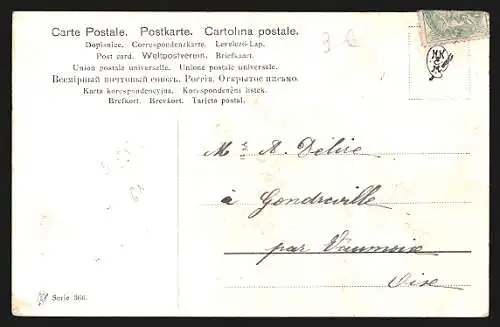 Carte Postale. Postkarte. Cartolina postale.
Dopisnice. Correspondenzkarte. Levelező-Lap.
Post card. Weltpostverein. Briefkaart.
Union postale universelle. Unione postale universale.
Всемірный почтовый союзъ. Россія. Открытое письмо.
Karta korespondencyjna. Korespondenční lístek.
Brefkort. Brevkort. Tarjeta postal.
3 €
Mr A. Délire
à Gondreville
par Vaumoise
Oise
Serie 366.